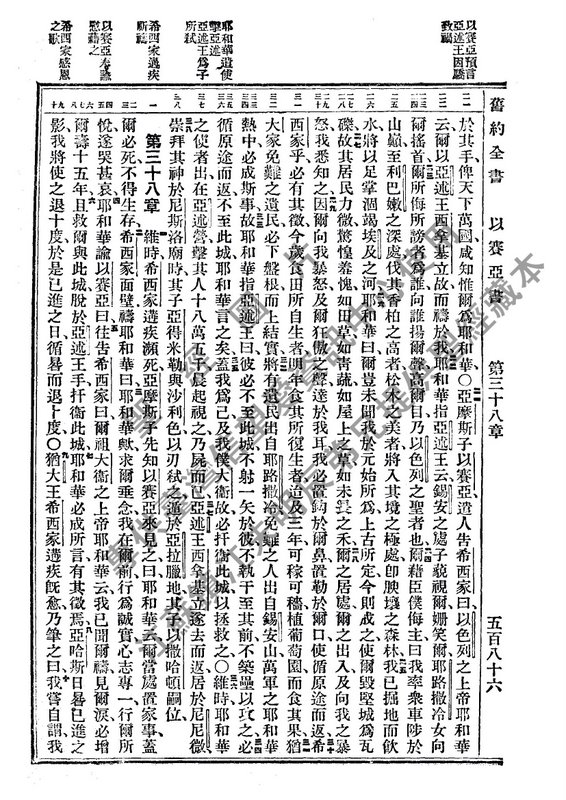 舊約全書 以賽亞書 第三十八章 五百八十六
以賽亞預言亞述王因驕致禍
於其手俾天下萬國咸知惟爾為耶和華○亞摩斯子以賽亞遣人告希西家曰以色列之上帝耶和華
云爾以亞述王西拿基立故而禱於我耶和華指亞述王云錫安之處子藐視爾姍笑爾耶路撒冷女向
爾搖首爾所侮所謗者為誰向誰揚爾聲高爾目乃以色列之聖者也爾藉臣僕侮主曰我率衆車陟於
山巔至利巴嫩之深處伐其香柏之高者松木之美者將入其境之極處即腴壤之森林我已掘地而飲
水將以足掌涸竭埃及之河耶和華曰爾豈未聞我於元始所為上古所定今則成之使爾毀堅城為瓦
礫故其居民力微驚惶羞愧如田草如青蔬如屋上之草如未長之禾爾之居處爾之出入及向我之暴
怒我悉知之因爾向我暴怒及爾狂傲之聲達於我耳我必置鈎於爾鼻置勒於爾口使循原途而返希
西家乎必有其徵今歲食田所自生者明年食其所復生者迨及三年可稼可穡植葡萄園而食其果猶
大家免難之遺民必下盤根而上結實將有遺民出自耶路撒冷免難之人出自錫安山萬軍之耶和華
熱中必成斯事故耶和華指亞述王曰彼必不至此城不射一矢於彼不執干至其前不築壘以攻之必
循原途而返不至此城耶和華言之矣蓋我為己及我僕大衛故必扞衛此城以拯救之○維時耶和華
耶和華遣使擊亞述亞述王為子所弒
之使者出在亞述營擊其人十八萬五千晨起視之乃屍而已亞述王西拿基立遂去而返居於尼尼微
崇拜其神於尼斯洛廟時其子亞得米勒與沙利色以刃弒之遁於亞拉臘地其子以撒哈頓嗣位
希西家遘疾祈禱
第三十八章 維時希西家遘疾瀕死亞摩斯子先知以賽亞來見之曰耶和華云爾當處置家事蓋
爾必死不得生存希西家面壁禱耶和華曰耶和華歟求爾垂念我在爾前行為誠實心志專一行爾所
以賽亞奉諭慰藉之
悅遂哭甚哀耶和華諭以賽亞曰往告希西家曰爾祖大衛之上帝耶和華云我已聞爾禱見爾淚必增
爾壽十五年且救爾與此城脫於亞述王手扞衛此城耶和華必成所言有其徵焉亞哈斯日晷已進之
希西家感恩之歌
影我將使之退十度於是已進之日循晷而退十度○猶大王希西家遘疾既愈乃筆之曰我嘗自謂我